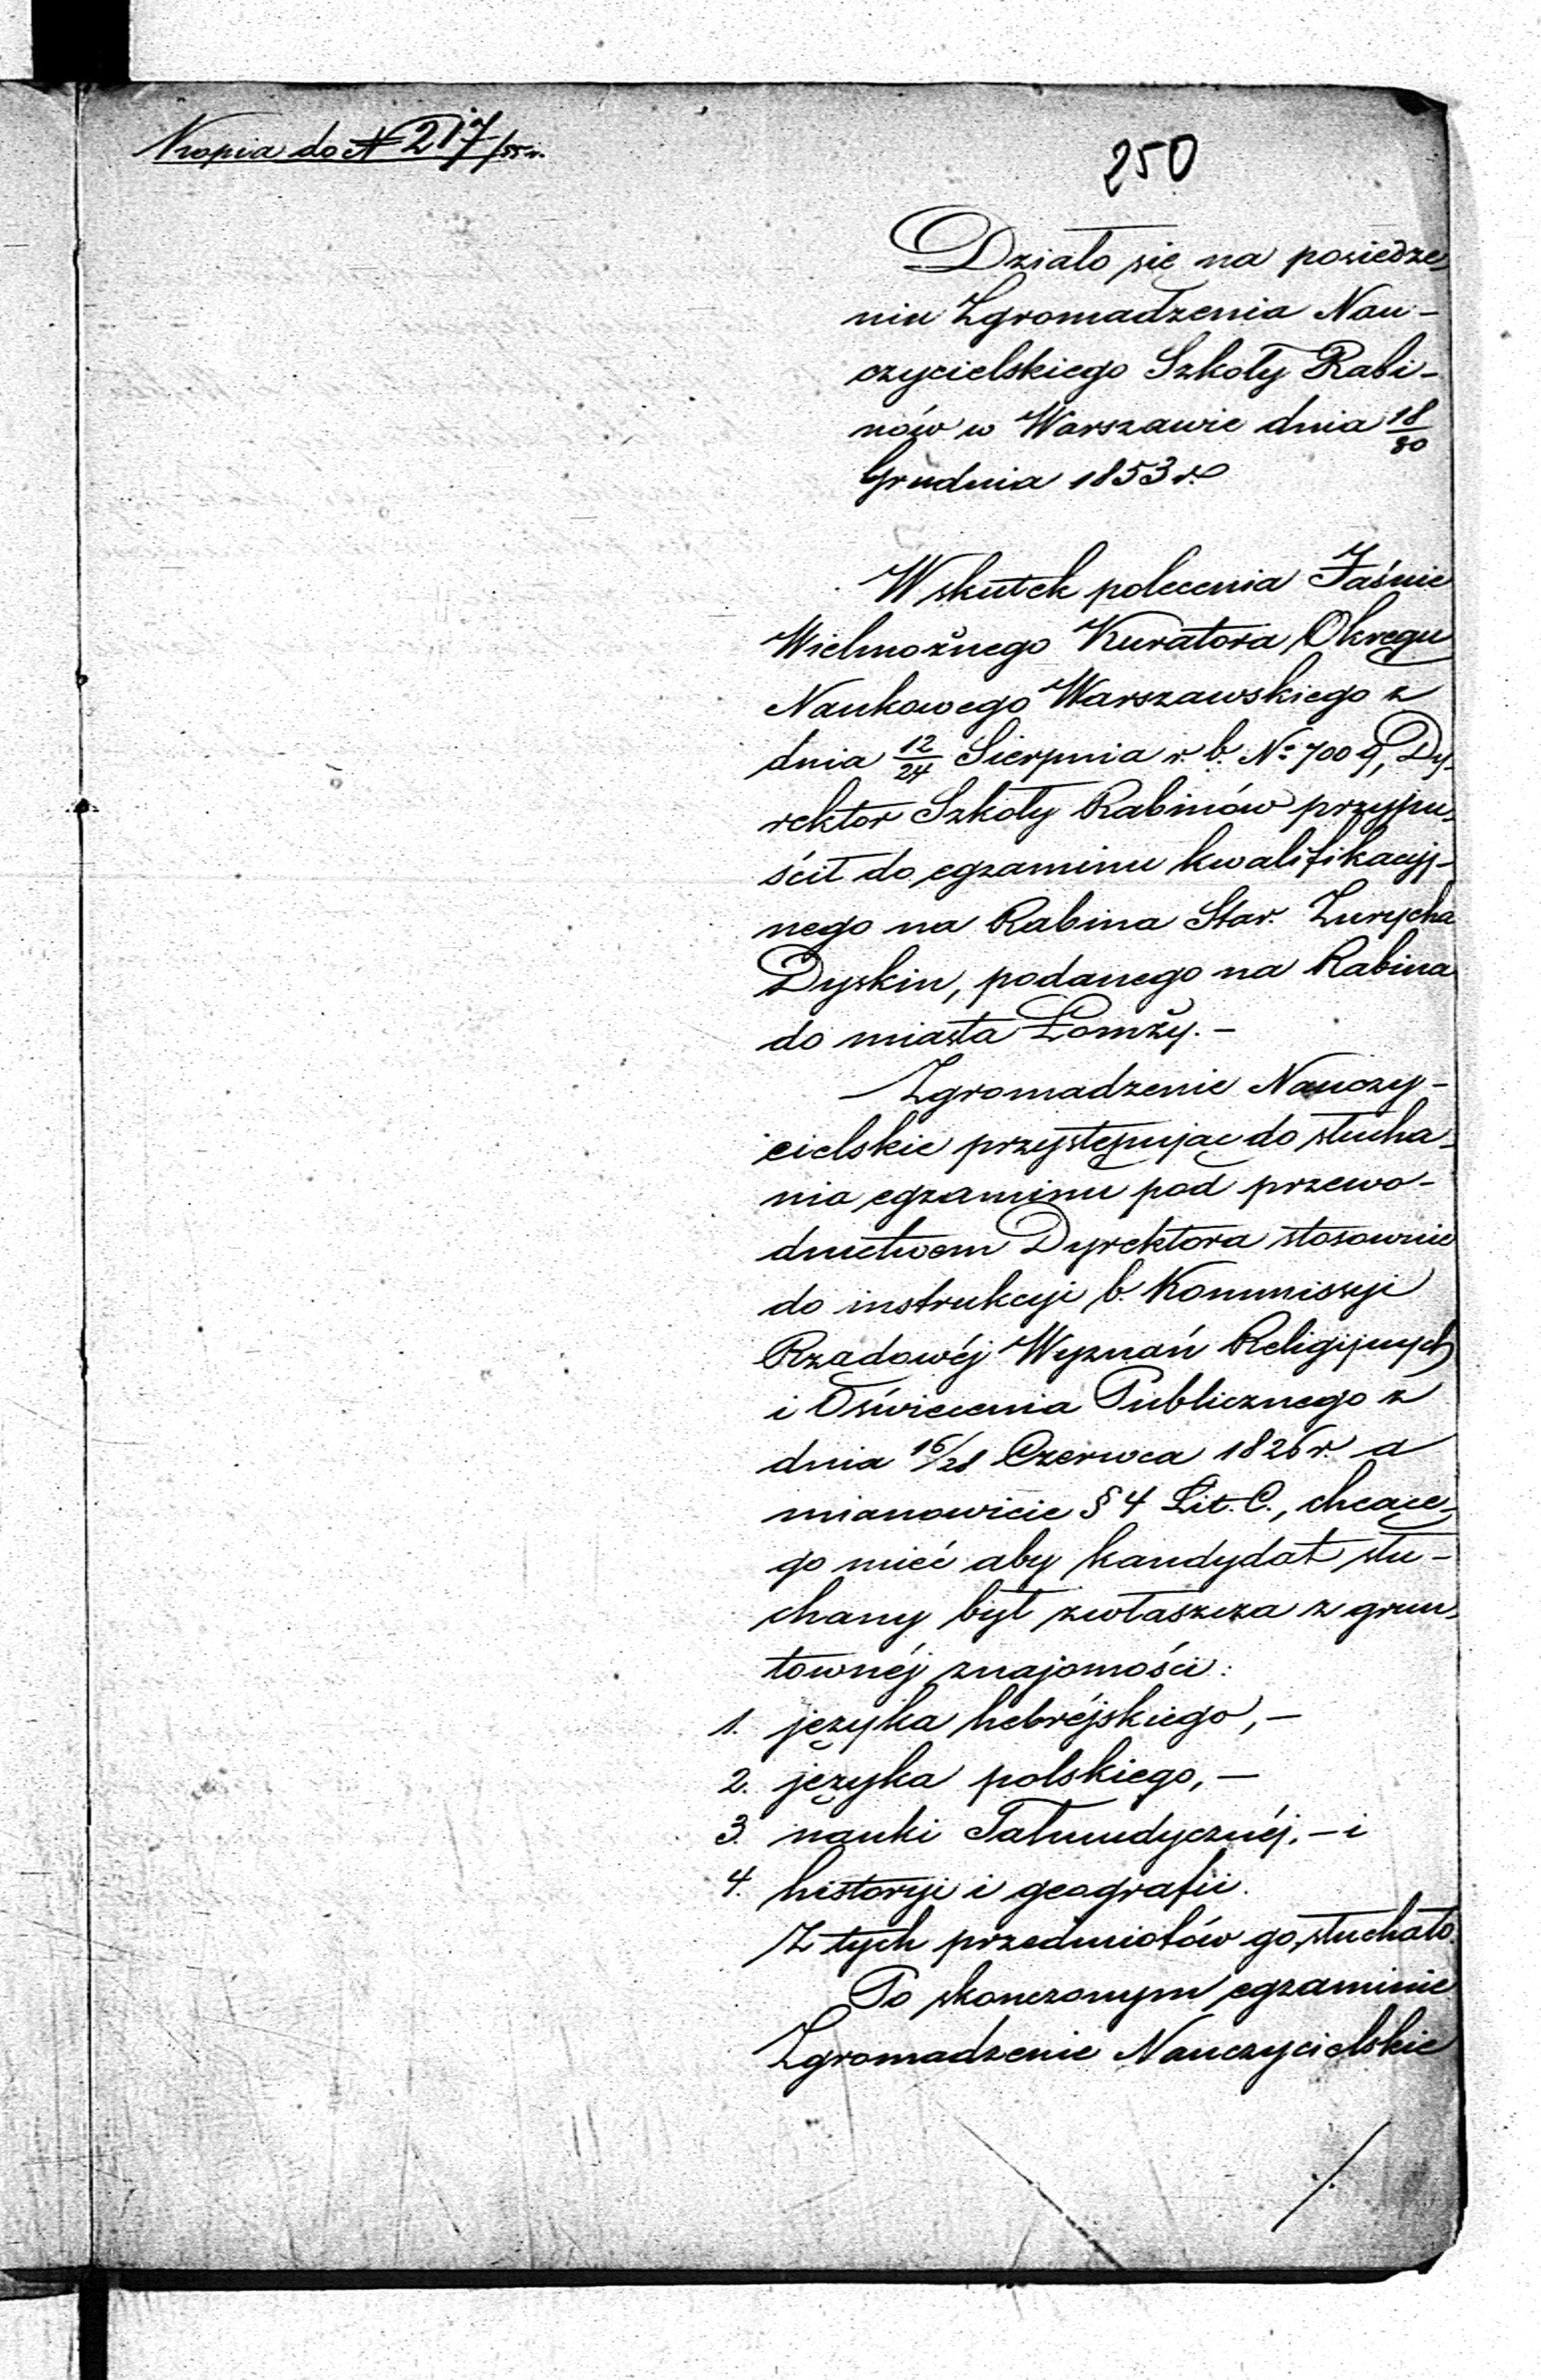 Kopia do N 217/55 r.
250
Działo się na posiedze-
niu Zgromadzenia Nau-
czycielskiego Szkoły Rabi-
nów w Warszawie dnia 18/30
Grudnia 1853 r.
W skutek polecenia Jaśnie
Wielmożnego Kuratora Okręgu
Naukowego Warszawskiego z
dnia 12/24 Sierpnia r. b. № 7009, Dy-
rektor Szkoły Rabinów przypu-
ścił do egzaminu kwalifikacyj-
nego na Rabina Star. Zurycha
Dyskin, podanego na Rabina
do miasta Łomży. –
Zgromadzenie Nauczy-
cielskie przystępując do słucha-
nia egzaminu pod przewo-
dnictwem Dyrektora stosownie
do instrukcyi b. Kommissyi
Rządowéj Wyznań Religijnych
i Oświecenia Publicznego z
dnia 16/28 Czerwca 1826 r. a
mianowicie § 4 Lit. C., chcące-
go mieć aby kandydat słu-
chany był zwłaszcza z grun-
townéj znajomości:
1. języka hebréjskiego, –
2. języka polskiego, –
3. nauki Talmudycznéj, – i
4. historyi i geografii.
Z tych przedmiotów go słuchało.
Po skonczonym egzaminie
Zgromadzenie Nauczycielskie